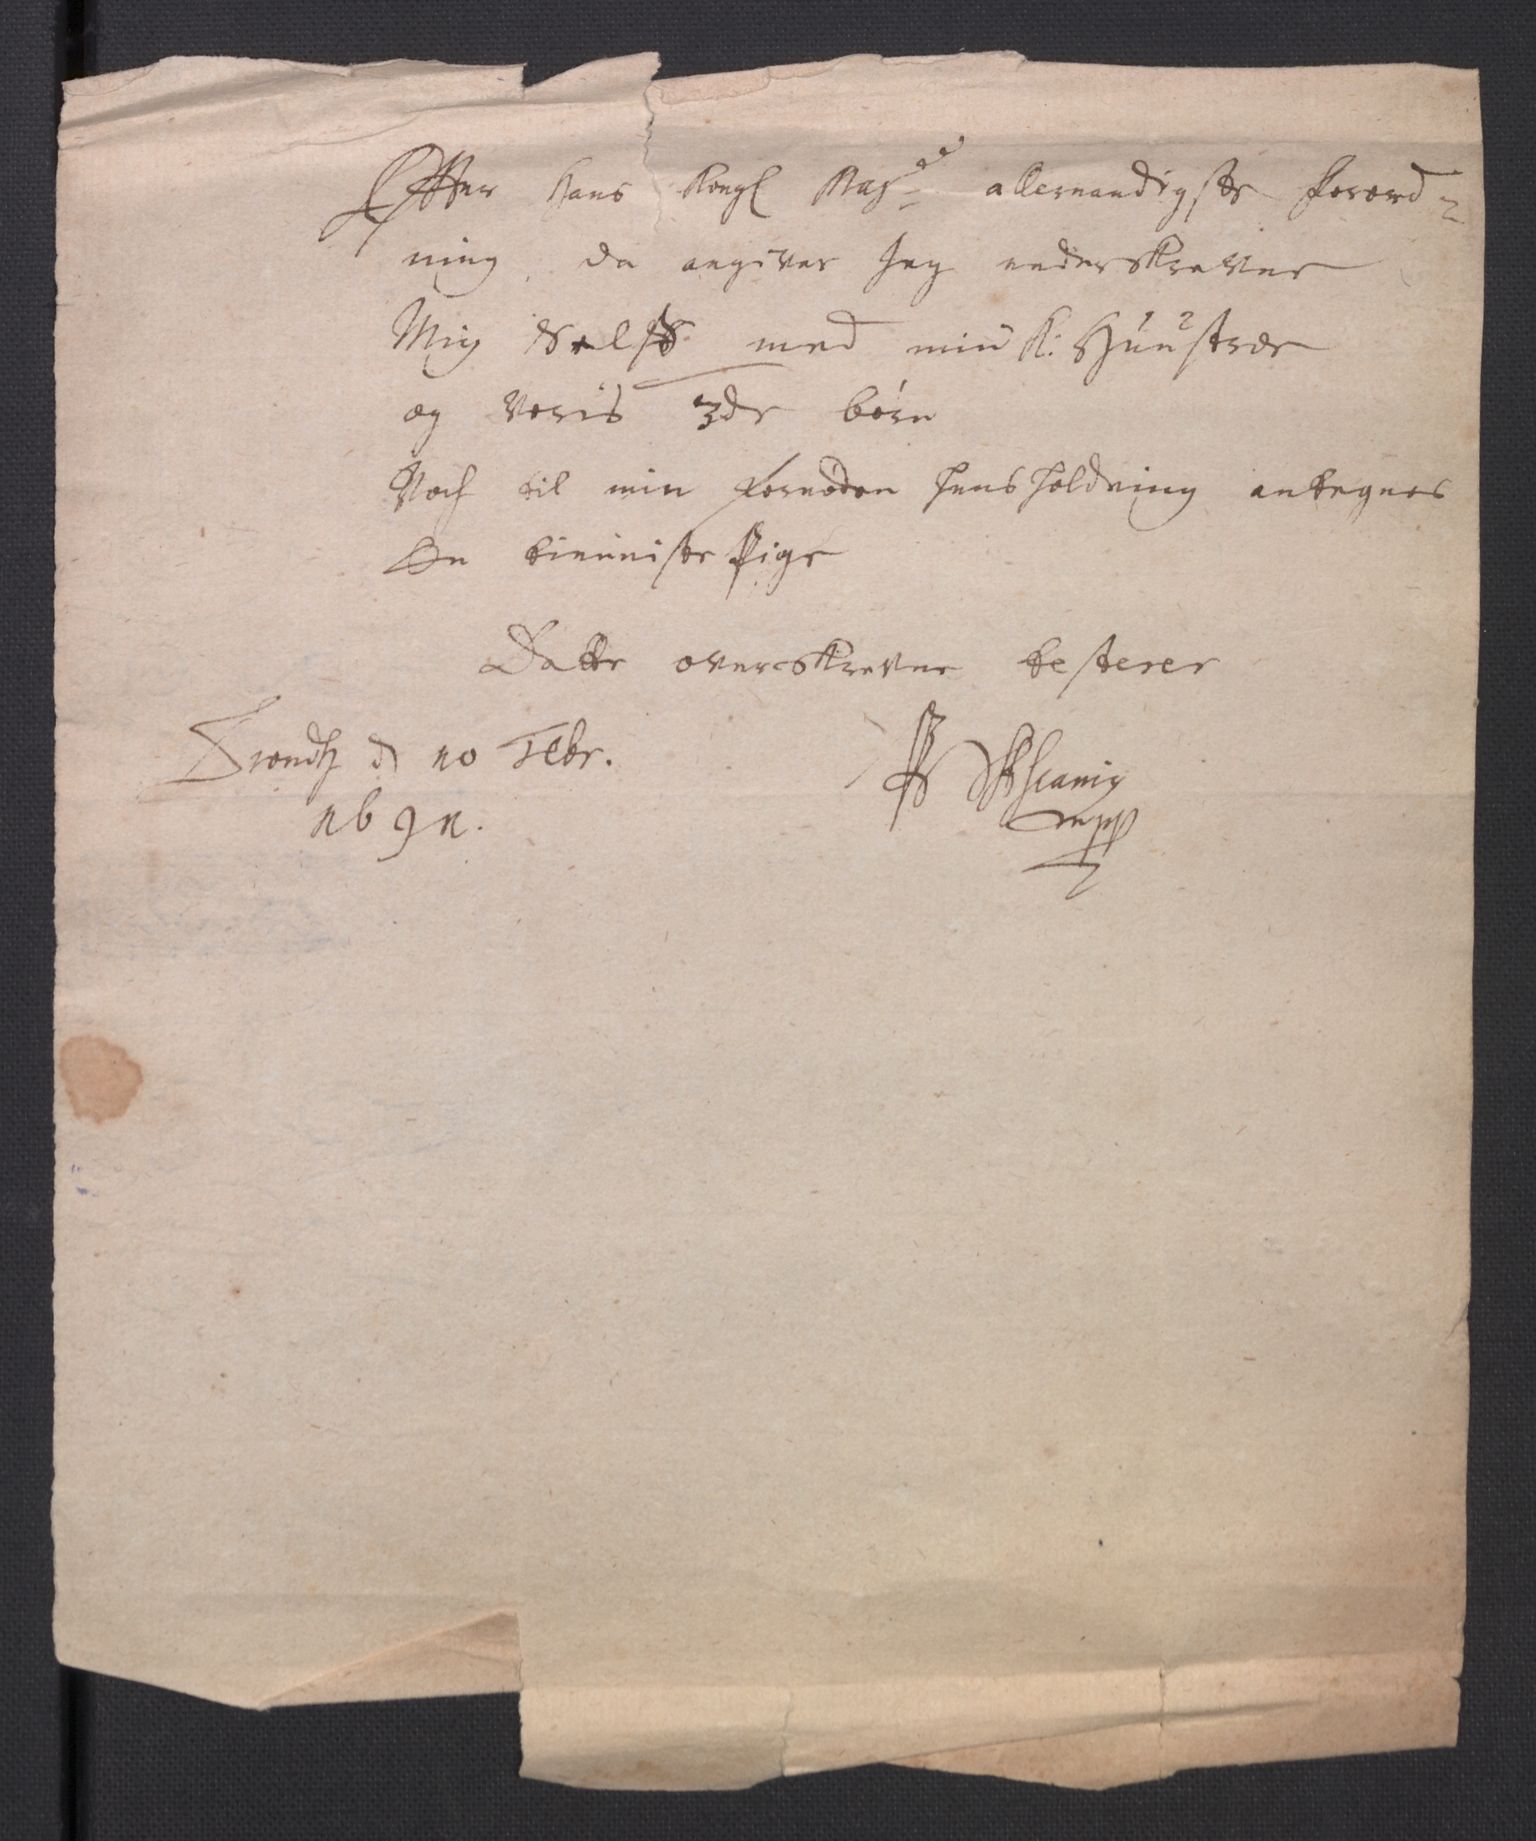 Effter Hans Kongl Maÿ.tt allernaadigste forord-
ning, da angiver Jeg underskrevne
Mig Selff med min K: Hùùstroe
og voris 3de børn
Noch til min fornøden huusholdning antegnes
En tienniste Pige
Dette overskrevne testerer
Trondh d 10 Febr.
1691.
mpp